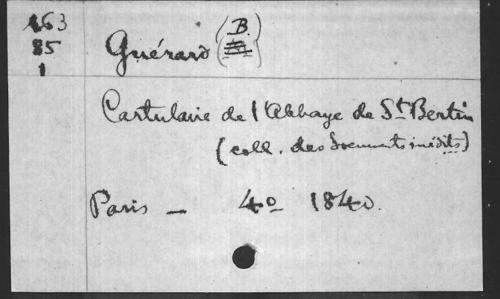 163
85
1
Guérard (B.)
Cartulaire de l'Abbaye de St Bertin
(coll. des Documents inédits)
Paris — 4o 1840.